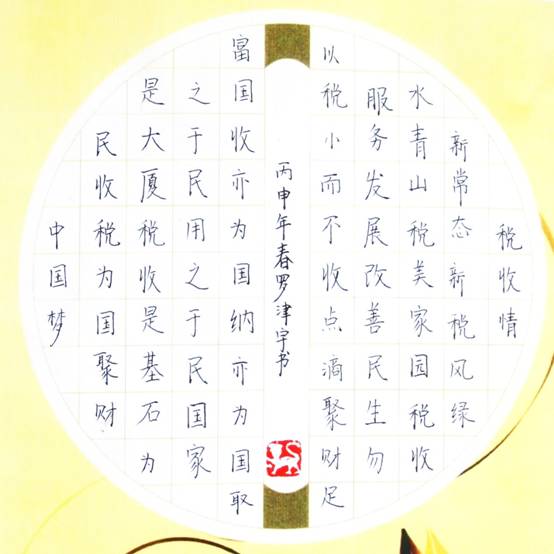 税收情
新常态新税风绿
水青山税美家园税收
服务发展改善民生勿
以税小而不收点滴聚财足
富国收亦为国纳亦为国取
之于民用之于民国家
是大厦税收是基石为
民收税为国聚财
中国梦
丙申年春罗津宇书